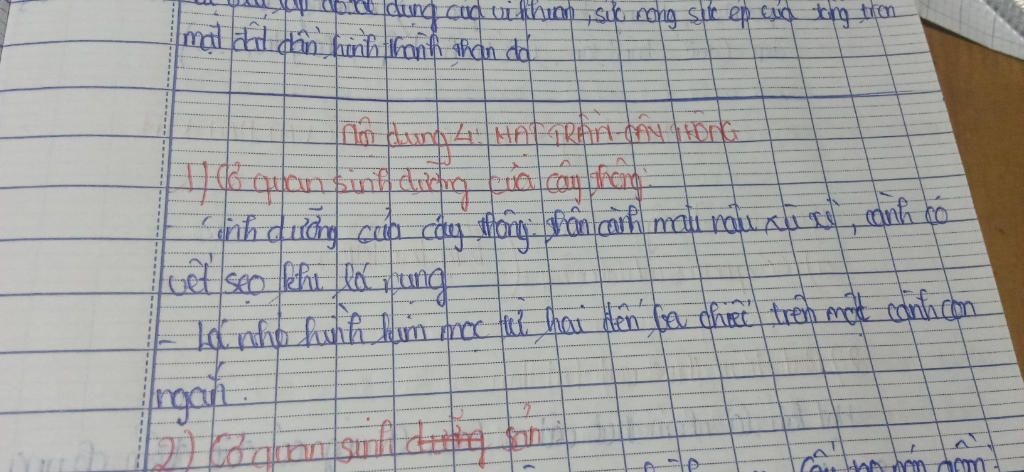 dụng của vi khuẩn, sức nóng sức ép của tầng trên
mặt đất dần hình thành than đá
Nội dung 4: HẠT TRẦN-CÂY THÔNG
1) Cơ quan sinh dưỡng của cây thông:
- Sinh dưỡng của cây thông: thân cành màu nâu xù xì, cành có
vết sẹo khi lá rụng
- Lá nhỏ hình kim mọc từ hai đến ba chiếc trên một cành con
ngắn.
2) Cơ quan sinh dưỡng sản